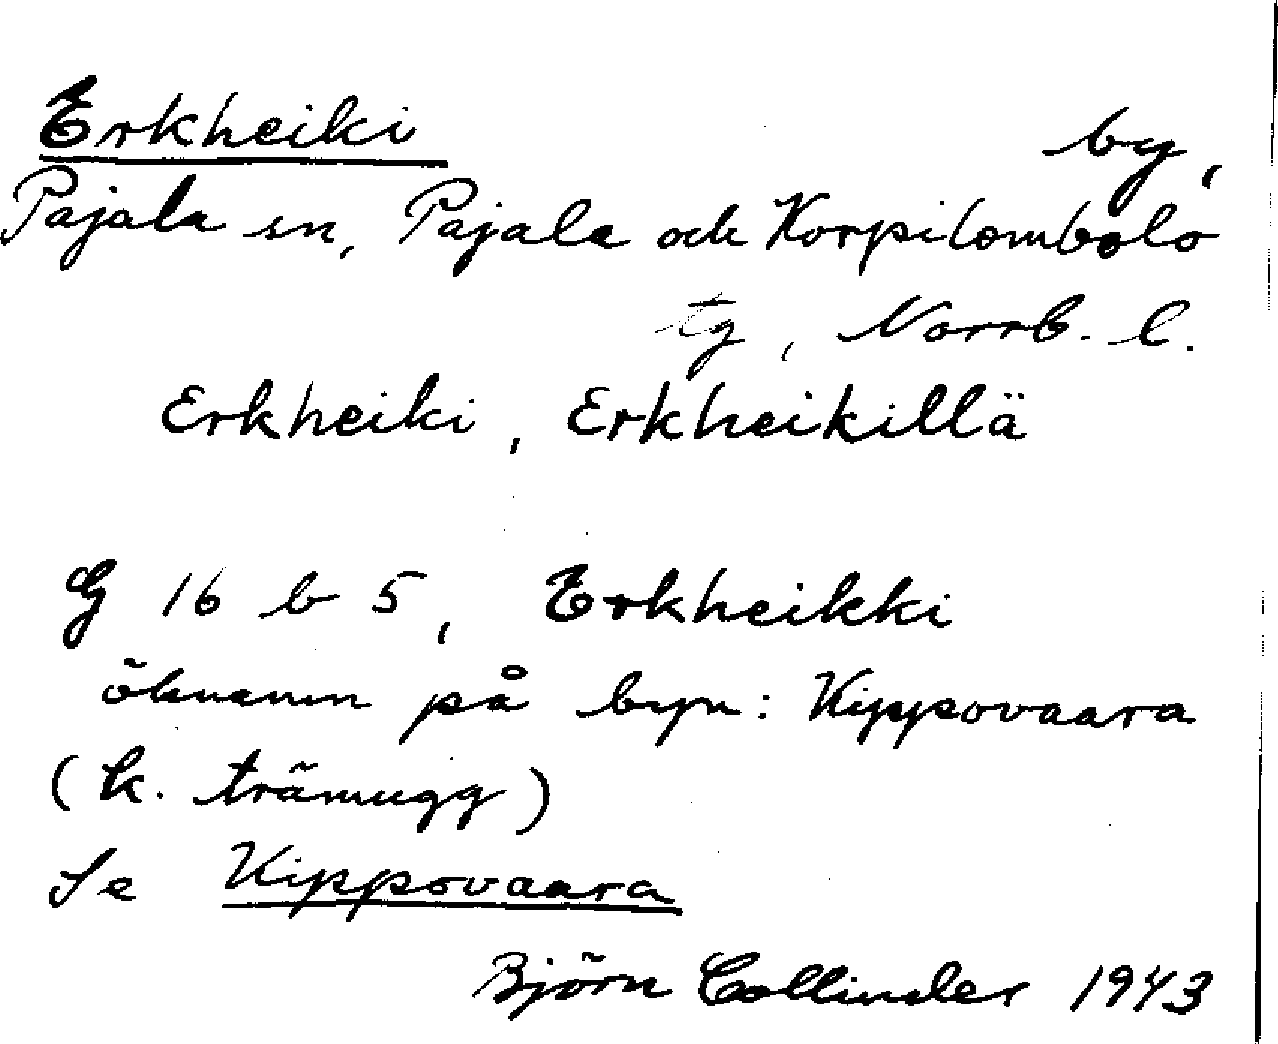 Erkheiki by,
Pajala sn, Pajala och Korpilombolo
tg, Norrb. l.
Erkheiki, Erkheikillä
G 16 b 5, Erkheikki
öknamn på byn: Kippovaara
(k. trämugg)
Se Kippovaara
Björn Collinder 1943